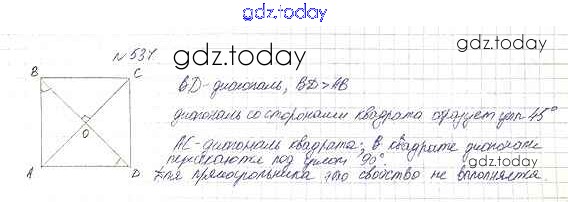 gdz.today
№ 537
gdz.today
gdz.today
B C
BD - диагональ, BD > AB
диагональ со сторонами квадрата образует угол 45°
O
AC - диагональ квадрата; в квадрате диагонали
пересекаются под углом 90°.
gdz.today
A D
Для прямоугольника это свойство не выполняется.